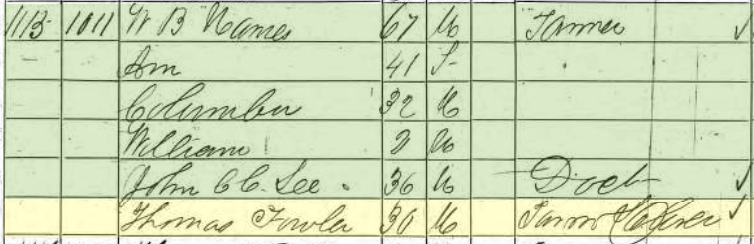 1115 1011 W B Names 67 M Farmer
Am 41 F
Columbus 32 M
William 2 M
John C C. Lee 36 M Doct
Thomas Fowler 30 M Farm